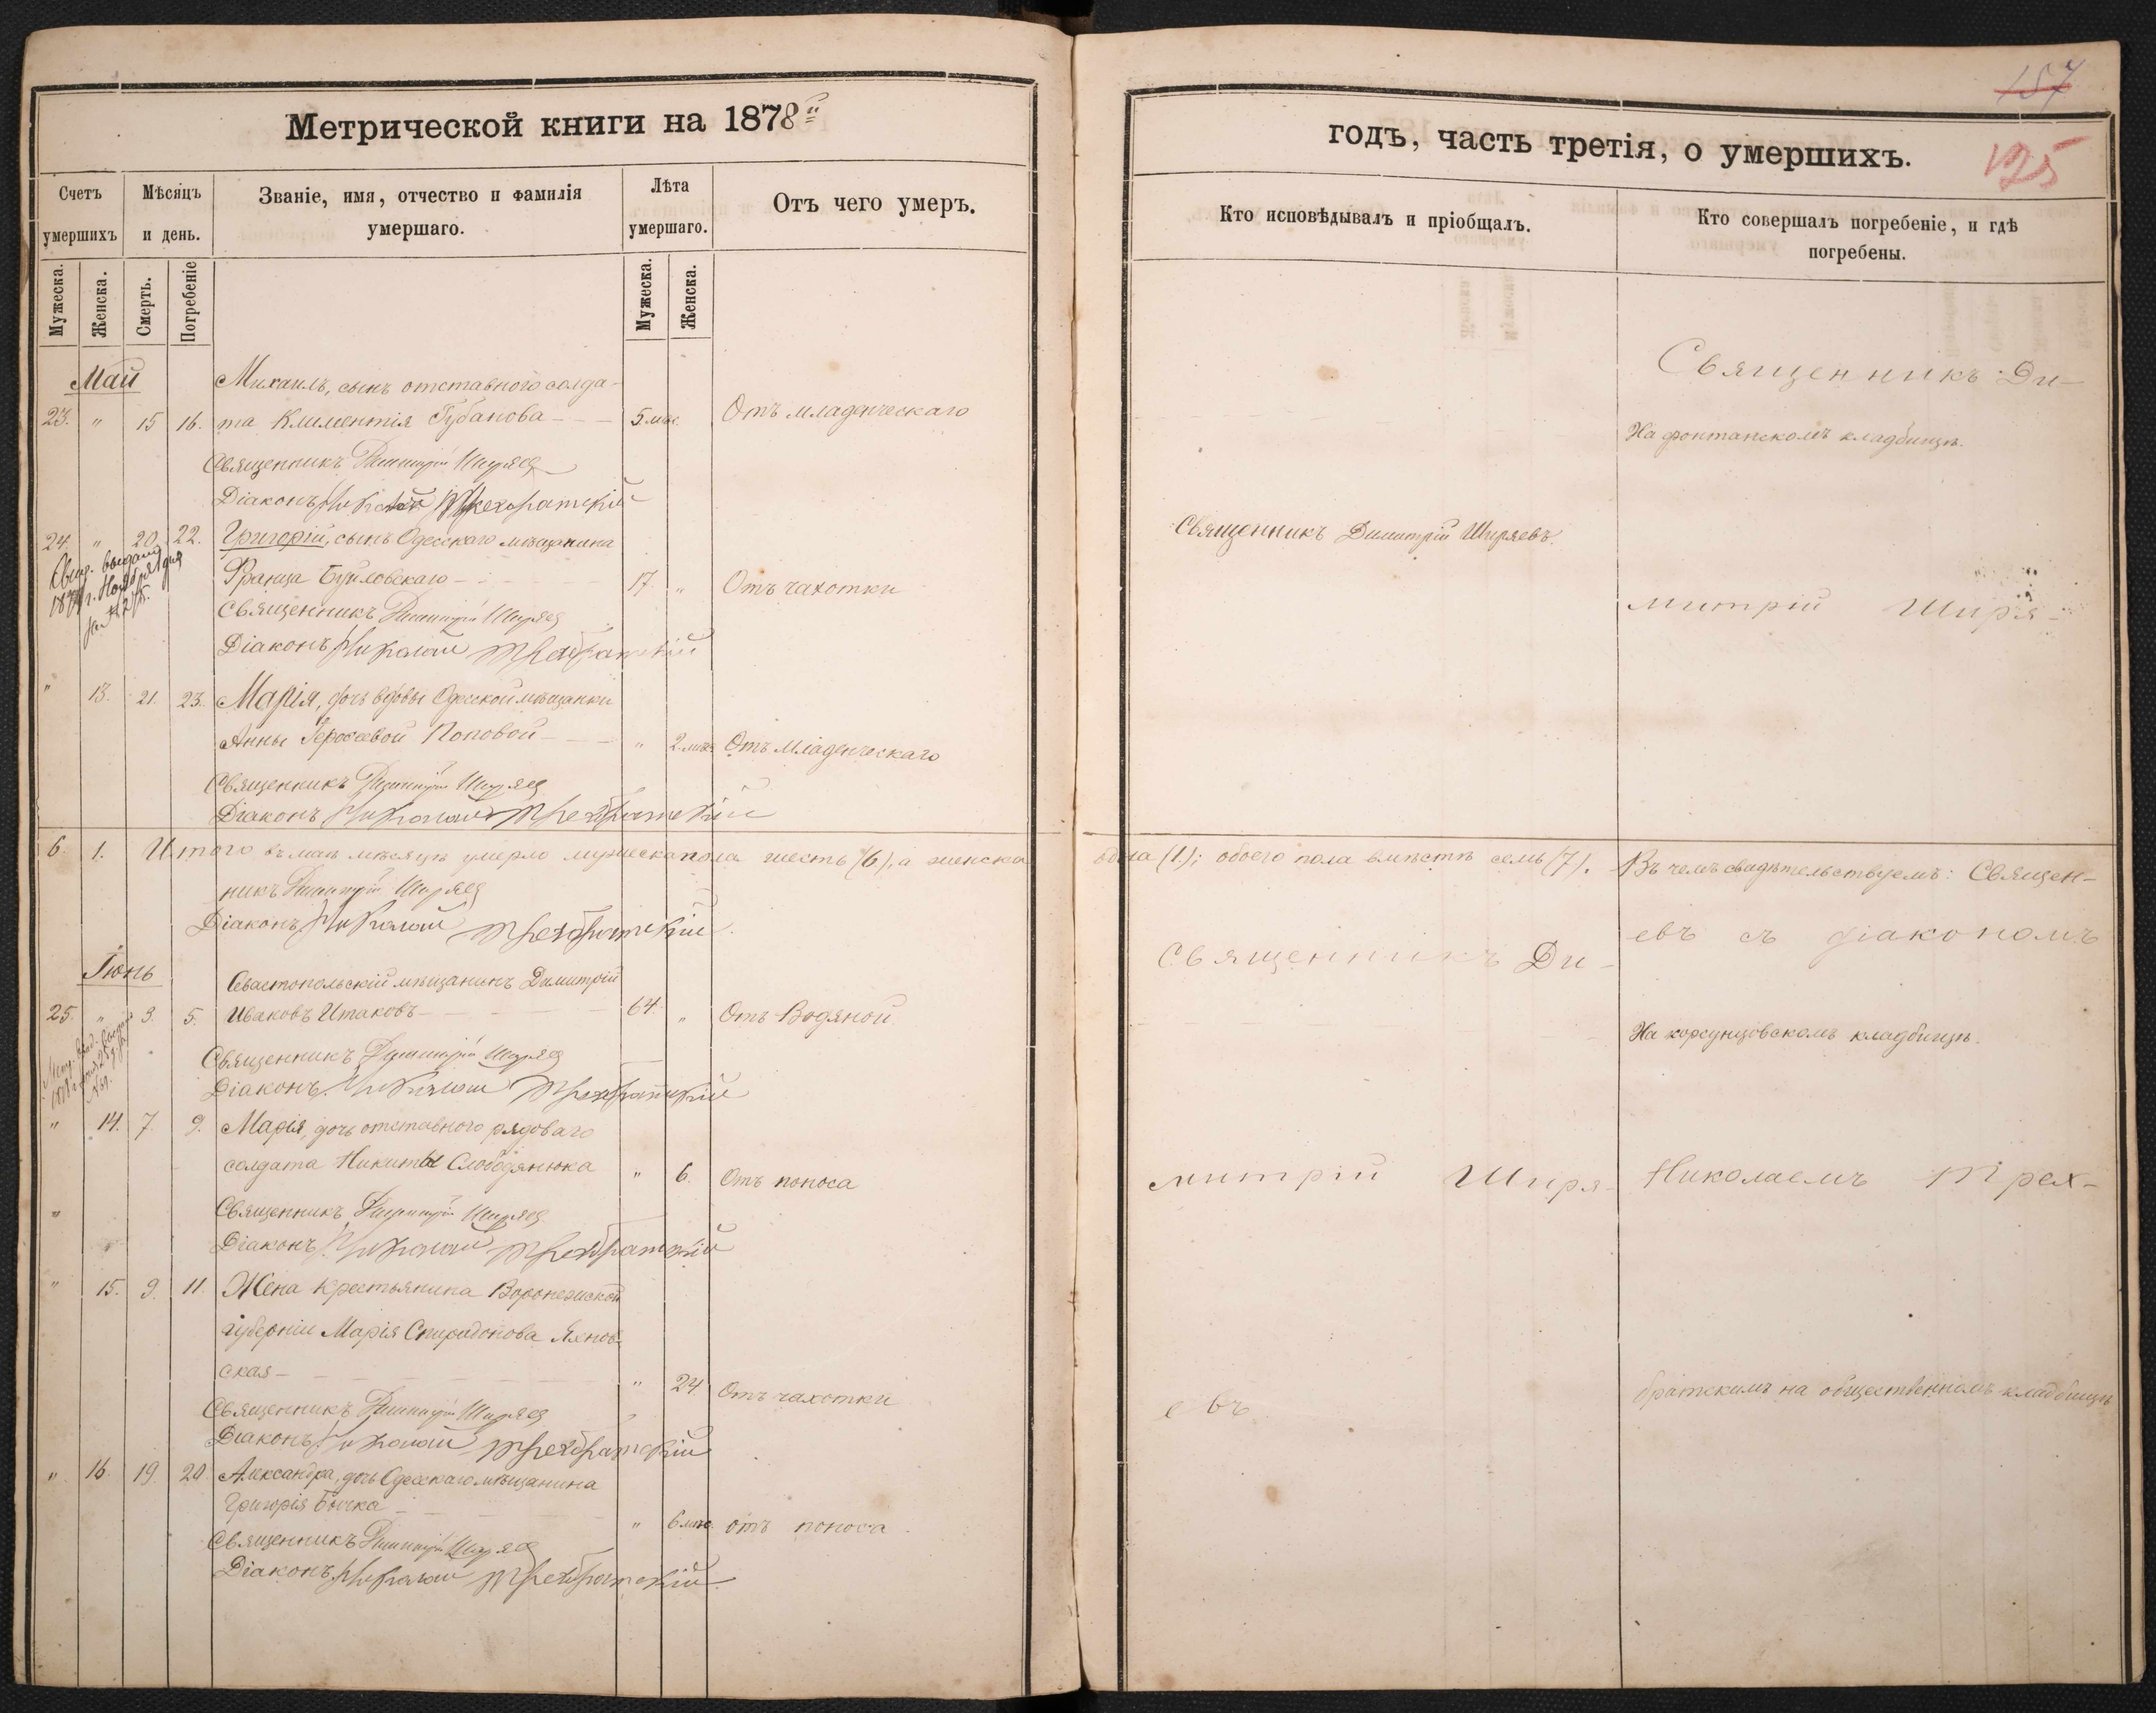 Метрической книги на 1878й
Счетъ умершихъ
Мѣсяцъ и день.
Званіе, имя, отчество и фамилія умершаго.
Лѣта умершаго.
Отъ чего умеръ.
Мужеска.
Женска.
Смерть.
Погребеніе
Мужеска.
Женска.
Май
Михаилъ, сынъ отставного солда-
23. " 15 16. та Климентія Губанова 5 мѣс. Отъ младенческаго
Священникъ Димитрій Ширяев
Діаконъ Николай Трехбратскій
24. " 20. 22. Григорій, сынъ Одесскаго мѣщанина
Франца 17. " Отъ чахотки
Свид. выдано
187 г. Ноября дня
за №
Священникъ Димитрій Ширяев
Діаконъ Николай Трехбратскій
" 13. 21. 23. Марія, дочь вдовы Одесской мѣщанки
Анны Поповой " 2 мѣс. Отъ младенческаго
Священникъ Димитрій Ширяев
Діаконъ Николай Трехбратскій
6. 1. Итого въ маѣ мѣсяцѣ умерло мужеска пола шесть (6), а женска
никъ Димитрій Ширяев
Діаконъ Николай Трехбратскій.
Іюнь
Севастопольскій мѣщанинъ Димитрій
25. " 3. 5. Ивановъ Итаковъ 64. " Отъ Водяной
Священникъ Димитрій Ширяев
Діаконъ Николай Трехбратскій
" 14. 7. 9. Марія, дочь отставного рядоваго
солдата Никиты Слободянюка " 6. Отъ поноса
Священникъ Димитрій Ширяев
Діаконъ Николай Трехбратскій
" 15. 9. 11. Жена крестьянина Воронежской
губерніи Марія Спиридонова Яхнов-
ская " 24. Отъ чахотки
Священникъ Димитрій Ширяев
Діаконъ Николай Трехбратскій
" 16. 19. 20. Александра, дочь Одесскаго мѣщанина
Григорія Бычка " 6 мѣс. отъ поноса
Священникъ Димитрій Ширяев
Діаконъ Николай Трехбратскій.
157
годъ, часть третія, о умершихъ.
125
Кто исповѣдывалъ и пріобщалъ.
Кто совершалъ погребеніе, и гдѣ погребены.
Священникъ Ди-
На фонтанскомъ кладбищѣ.
Священникъ Димитрій Ширяевъ.
митрій Ширя-
одна (1); обоего пола вмѣстѣ семь (7). Въ чемъ свидѣтельствуемъ: Священ-
евъ съ діакономъ
Священникъ Ди-
На корсунцовскомъ кладбищѣ.
митрій Ширя- Николаемъ Трех-
евъ
братскимъ на общественномъ кладбищѣ